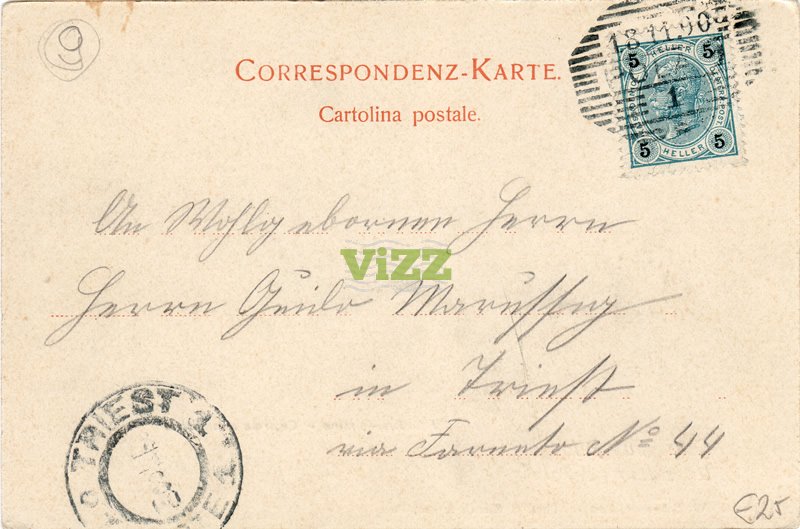 9
18.11.90
5 HELLER 5
1
5 HELLER 5
CORRESPONDENZ-KARTE.
Cartolina postale.
An Wohlgebornen Herrn
ViZZ
Herrn Guido Marussig
in Triest
via Farneto No 44
TRIEST 1